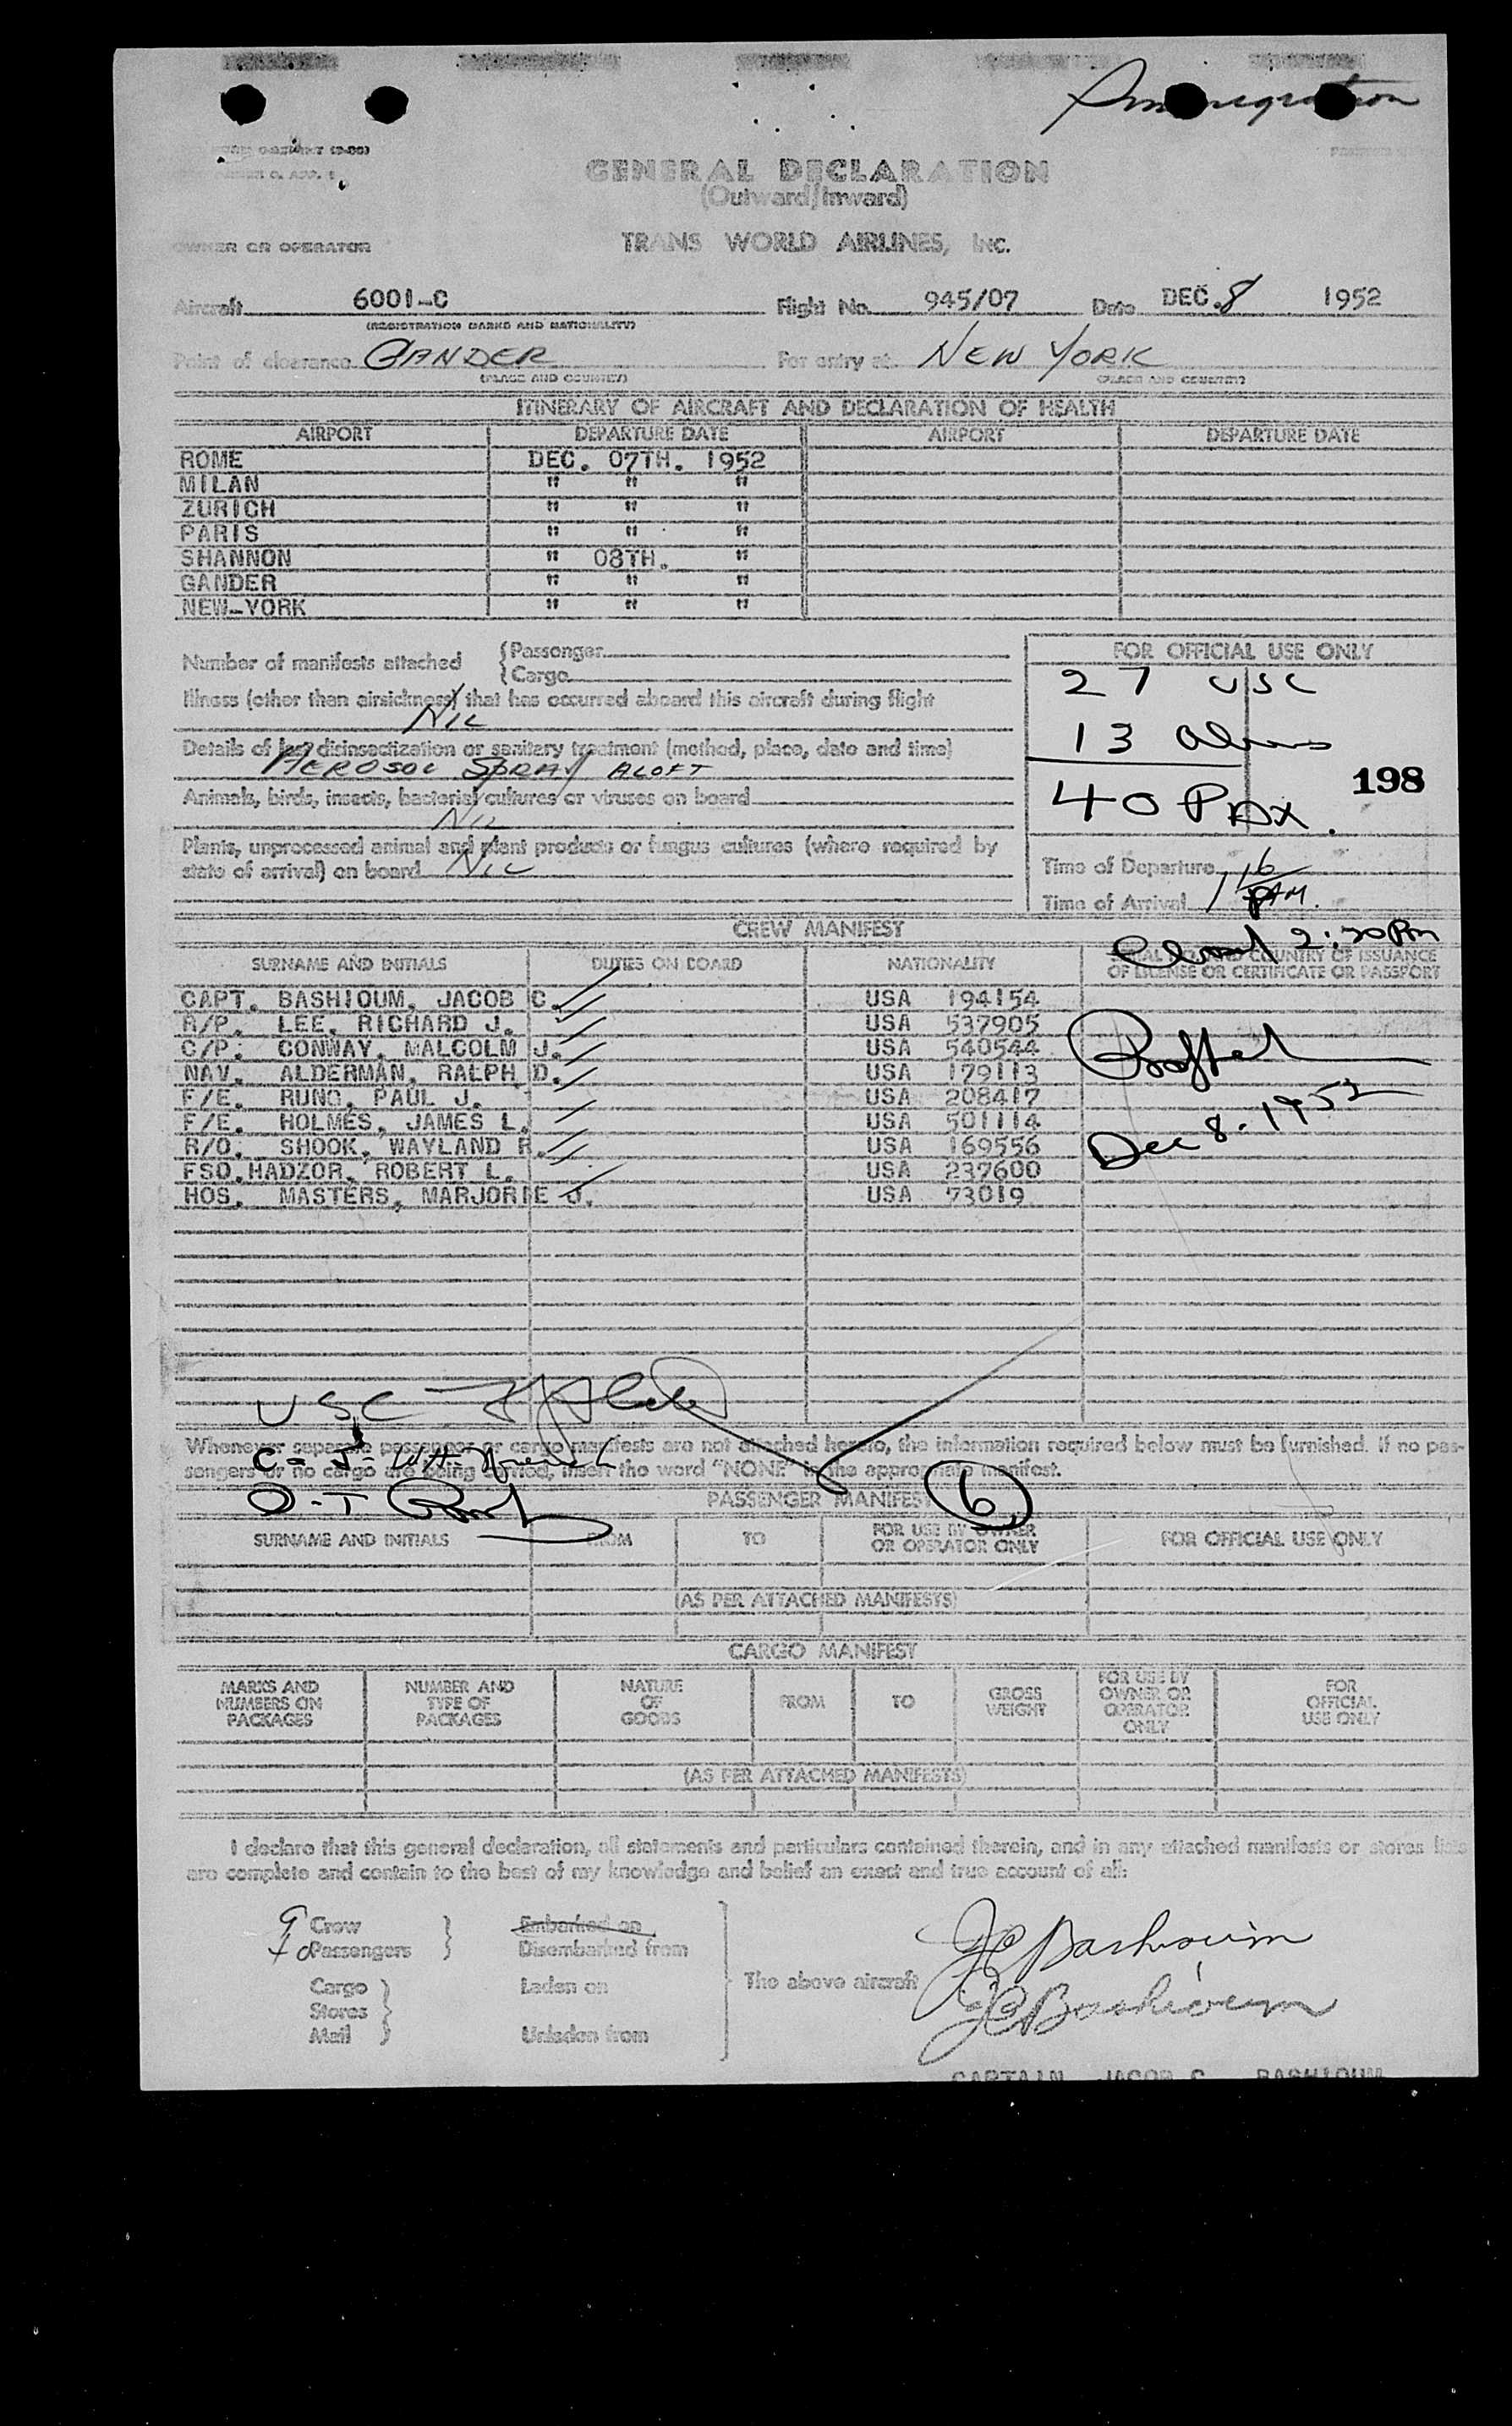 Immigration
GENERAL DECLARATION
(Outward/Inward)
OWNER OR OPERATOR TRANS WORLD AIRLINES, INC.
Aircraft 6001-C Flight No. 945/07 Date DEC. 8 1952
(REGISTRATION MARKS AND NATIONALITY)
Point of clearance GANDER For entry at NEW YORK
(PLACE AND COUNTRY) (PLACE AND COUNTRY)
ITINERARY OF AIRCRAFT AND DECLARATION OF HEALTH
AIRPORT DEPARTURE DATE AIRPORT DEPARTURE DATE
ROME DEC. 07TH. 1952
MILAN " " "
ZURICH " " "
PARIS " " "
SHANNON " 08TH. "
GANDER " " "
NEW-YORK " " "
Number of manifests attached {Passenger
{Cargo
Illness (other than airsickness) that has occurred aboard this aircraft during flight
NIL
Details of last disinsectization or sanitary treatment (method, place, date and time)
AEROSOL SPRAY ALOFT
Animals, birds, insects, bacterial cultures or viruses on board
NIL
Plants, unprocessed animal and plant products or fungus cultures (where required by
state of arrival) on board NIL
FOR OFFICIAL USE ONLY
27 USC
13 Aliens
40 PAX.
198
Time of Departure
Time of Arrival 1 16 PM.
CREW MANIFEST
2:20 Pm
SURNAME AND INITIALS DUTIES ON BOARD NATIONALITY SERIAL NO. AND COUNTRY OF ISSUANCE
OF LICENSE OR CERTIFICATE OR PASSPORT
CAPT. BASHIOUM, JACOB C. USA 194154
R/P. LEE, RICHARD J. USA 537905
C/P. CONWAY, MALCOLM J. USA 540544
NAV. ALDERMAN, RALPH D. USA 179113
F/E. RUNO, PAUL J. USA 208417
F/E. HOLMES, JAMES L. USA 501114
R/O. SHOOK, WAYLAND R. USA 169556
FSO. HADZOR, ROBERT L. USA 237600
HOS. MASTERS, MARJORIE J. USA 73019
Dec 8 - 1952
USC
Whenever separate passenger or cargo manifests are not attached hereto, the information required below must be furnished. If no pas-
sengers or no cargo are being carried, insert the word "NONE" in the appropriate manifest.
PASSENGER MANIFEST 6
SURNAME AND INITIALS FROM TO FOR USE BY OWNER
OR OPERATOR ONLY FOR OFFICIAL USE ONLY
(AS PER ATTACHED MANIFESTS)
CARGO MANIFEST
MARKS AND
NUMBERS ON
PACKAGES NUMBER AND
TYPE OF
PACKAGES NATURE
OF
GOODS FROM TO GROSS
WEIGHT FOR USE BY
OWNER OR
OPERATOR
ONLY FOR
OFFICIAL
USE ONLY
(AS PER ATTACHED MANIFESTS)
I declare that this general declaration, all statements and particulars contained therein, and in any attached manifests or stores lists
are complete and contain to the best of my knowledge and belief an exact and true account of all:
9 Crew Embarked on
40 Passengers Disembarked from
Cargo Laden on
Stores
Mail Unladen from
The above aircraft
JC Bashioum
JC Bashioum
CAPTAIN JACOB C. BASHIOUM